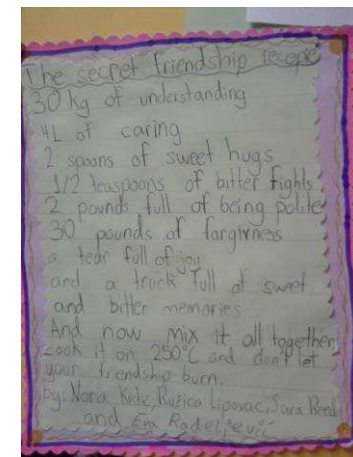 The secret friendship recepie
30 kg of understanding
4L of caring
2 spoons of sweet hugs
1/2 teaspoons of bitter fights
2 pounds full of being polite
30 pounds of forgivness
a tear full of joy
and a truck full of sweet
and bitter memories
And now mix it all together,
cook it on 250°C and don't let
your friendship burn.
by: Nora Ruzica Lipovac, Sara
and Ema